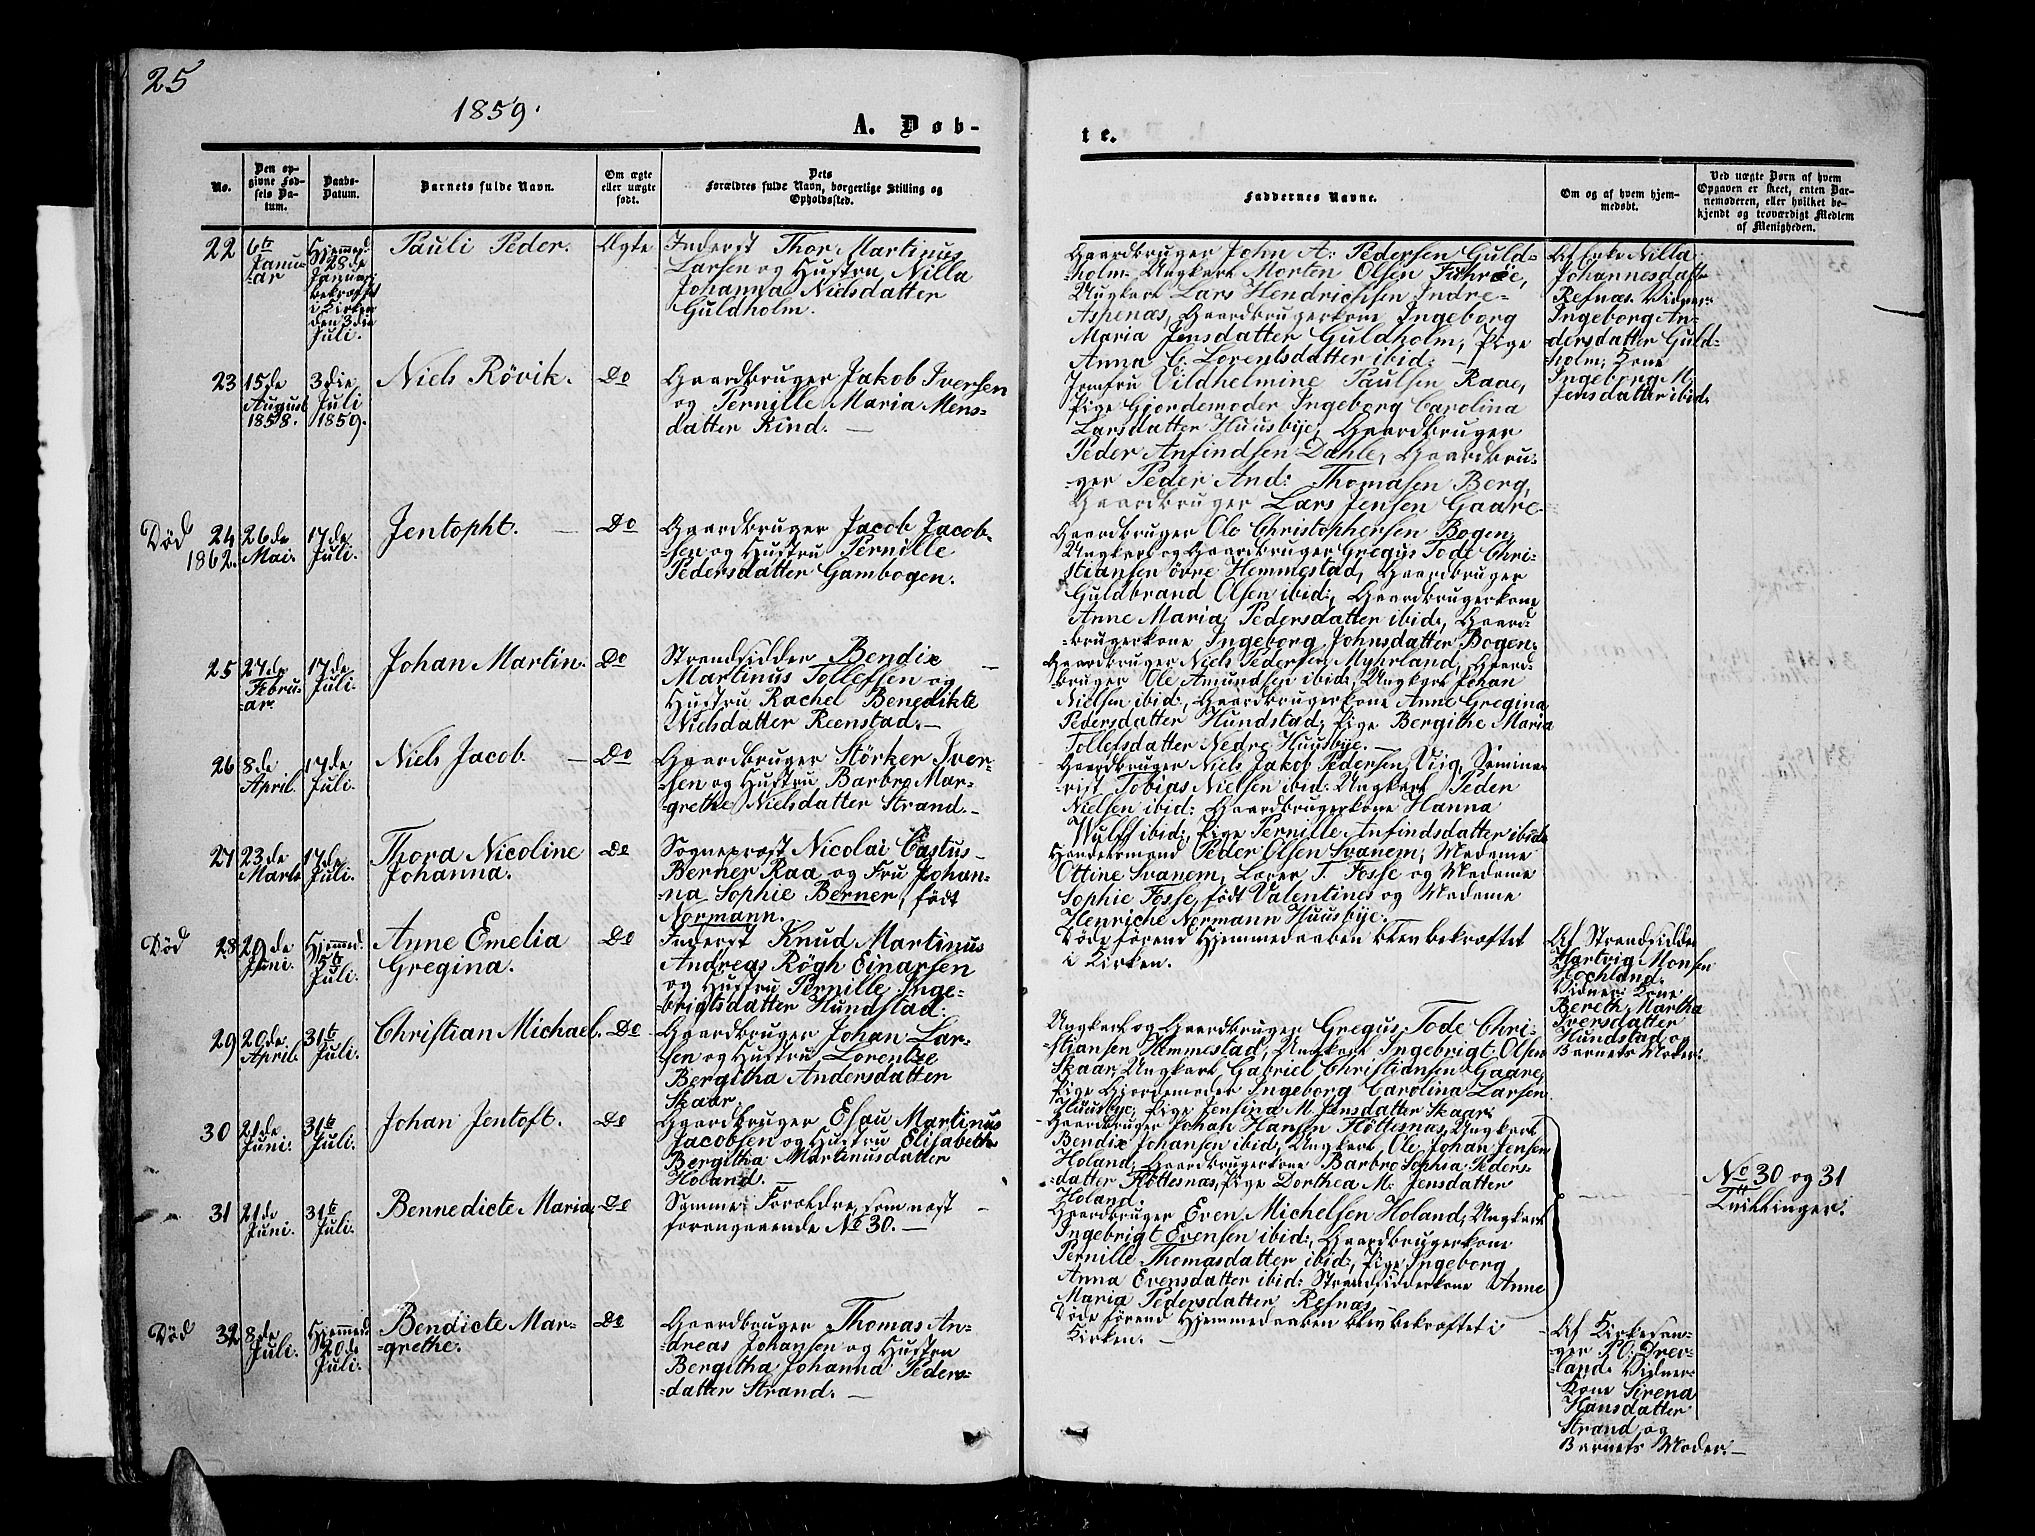 25
1859.
A. Døb-
te.
No.
Den op-
givne Fød-
sels Da-
tum.
Daabs-
Datum.
Barnets fulde Navn.
Om ægte
eller uægte
født.
Dets
Forældres fulde Navn, borgerlige Stilling og
Opholdssted.
Faddernes Navne.
Om og af hvem hjem-
medøbt.
Ved uægte Børn af hvem
Opgaven er skeet, enten Bar-
nemoderen, eller hvilket be-
kjendt og troværdigt Medlem
af Menigheden.
22
6te
Janu-
-ar
Hjemmed.
28de
Januari
bekræftet
i Kirken
den 3die
Juli.
Pauli Peder.
Ægte
Inderst Thor Martinus
Larsen og Hustru Nilla
Johanna Nielsdatter
Guldholm.
Gaardbruger John A: Pedersen Guld-
holm, Ungkarl Morten Olsen Fuhrøe,
Ungkarl Lars Hendrichsen Indre-
Aspenæs, Gaardbrugerkone Ingeborg
Maria Jensdatter Guldholm, Pige
Anna C. Lorentsdatter ibid: —
Af Enke Nilla
Johannesdatt:
Refnæs. Vidner:
Ingeborg An-
dersdatter Guld-
holm, Kone
Ingeborg M.
Jensdatter ibid.
23
15de
August
1858.
3die
Juli
1859.
Niels Rövik.
Do
Gaardbruger Jakob Iversen
og Pernille Maria Mons-
datter Kind. —
Jomfru Vildhelmine Paulsen Raae,
Pige Gjordemoder Ingeborg Carolina
Larsdatter Huusbye, Gaardbruger
Peder Anfindsen Dahle, Gaardbru-
-ger Peder And: Thomasen Berg,
Gaardbruger Lars Jensen Gaare.
Død
1862.
24
26de
Mai.
17de
Juli.
Jentopht. —
Do
Gaardbruger Jacob Jacob-
-sen og Hustru Pernille
Pedersdatter Gambogen.
Gaardbruger Ole Christophersen Bogen,
Ungkarl og Gaardbruger Gregus Tode Chri-
stiansen övre Hemmestad, Gaardbruger
Guldbrand Olsen ibid:, Gaardbrugerkone
Anne Maria Pedersdatter ibid., Gaard-
-brugerkone Ingeborg Johnsdatter Bogen.
25
27de
Febru-
-ar.
17de
Juli.
Johan Martin.
Do
Strandsidder Bendix —
Martinus Tollefsen og
Hustru Rachel Benedikte
Nielsdatter Reenstad. —
Gaardbruger Niels Pedersen Myhrland, Gaard-
bruger Ole Amundsen ibid:, Ungkarl Johan
Nielsen ibid:, Gaardbrugerkone Anne Gregina
Pedersdatter Hundstad, Pige Bergithe Maria
Tollefsdatter Nedre Huusbye. —
26
8de
April.
17de
Juli.
Niels Jacob. —
Do
Gaardbruger Störker Iver-
-sen og Hustru Barbro Mar-
grethe Nielsdatter Strand. —
Gaardbruger Niels Jakob Pedersen Vig, Semina-
-rist Tobias Nielsen ibid: Ungkarl Peder
Nielsen ibid: Gaardbrugerkone Hanna
Wulff ibid:, Pige Pernille Anfindsdatter ibid:
27
23de
Marts
17de
Juli.
Thora Nicoline
Johanna.
Do
Sogneprest Nicolai Castus
Berner Raa og Fru Johan-
-na Sophie Berner, født
Normann.
Handelsmand Peder Olsen Svanem, Madame
Ottine Svanem, Lærer T. Fosse og Madame
Sophie Fosse, født Valentines og Madame
Henriche Normann Huusbye.
Død
28
29de
Juni.
Hjemmed.
5te
Juli.
Anne Emelia
Gregina.
Do
Inderst Knud Martinus
Andreas Rögh Einarsen
og Hustru Pernille Inge-
brigtsdatter Hundstad.
Døde førend Hjemmedaaben blev bekræftet
i Kirken.
Af Strandsidder
Hartvig Monsen
Hochland.
Vidner: Kone
Bereth Martha
Iversdatter
Hundstad og
Barnets Moder.
29
20de
April.
31te
Juli.
Christian Michael.
Do
Gaardbruger Johan Lar-
sen og Hustru Lorentze
Bergitha Andersdatter
Skaar.
Ungkarl og Gaardbruger Gregus Tode Chri-
-stiansen Hemmestad, Ungkarl Ingebrigt Olsen
Skaar, Ungkarl Gabriel Christiansen Gaare,
Pige Gjordemoder Ingeborg Carolina Larsen
Huusbye, Pige Jensina M. Jensdatter Skaar.
30
21de
Juni.
31te
Juli.
Johan Jentoft.
Do
Gaardbruger Esau Martinus
Jacobsen og Hustru Elisabeth
Bergitha Martinusdatter
Holand.
Gaardbruger Johan Hansen Flöttesnæs, Ungkarl
Bendix Johansen ibid, Ungkarl Ole Johan Jensen
Holand, Gaardbrugerkone Barbro Sophia Peders-
datter Flöttesnæs, Pige Dorthea M: Jensdatter
Holand.
No 30 og 31
Tvillinger.
31
21de
Juni.
31te
Juli.
Bennedicte Maria.
Do
Samme Forældre, som næst —
forangaaende No 30. —
Gaardbruger Even Michelsen Holand, Ungkarl
Ingebrigt Evensen ibid:, Gaardbrugerkone
Pernille Thomasdatter ibid:, Pige Ingeborg
Anna Evensdatter ibid: Strandsidderkone Anne
Maria Pedersdatter Refnæs.
Død
32
8de
Juli.
Hjemmed.
20de
Juli.
Bendicte Mar-
-grethe.
Do
Gaardbruger Thomas An-
-dreas Johansen og Hustru
Bergitha Johanna Peders-
-datter Strand. —
Døde førend Hjemmedaaben blev bekræftet i
Kirken. —
Af Kirkesan-
ger P.O: Trer-
land. Vidner:
Kone Sirena
Hansdatter
Strand og
Barnets Moder. —